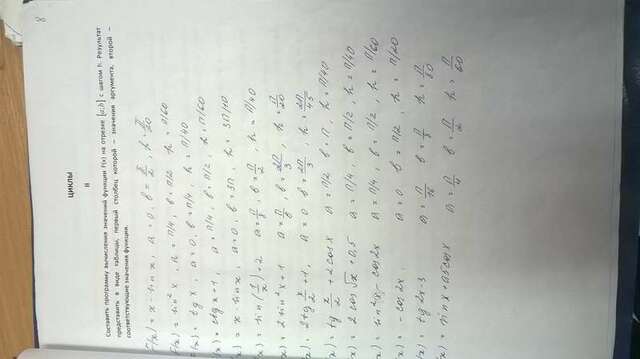 8
ЦИКЛЫ
II
Составить программу вычисления значений функции F(x) на отрезке [a;b] с шагом h. Результат
представить в виде таблицы, первый столбец которой – значения аргумента, второй –
соответствующие значения функции.
F(x) = x - sin x, a = 0, b = π/2, h = π/20
F(x) = sin² x, a = π/4, b = π/2, h = π/60
F(x) = tg x, a = 0, b = π/4, h = π/40
x) = ctg x + 1, a = π/4, b = π/2, h = π/60
x) = x sin x, a = 0, b = 3π, h = 3π/40
x) = sin(1/x) + 2, b = π/2, h = π/40
x) = 2 sin² x + 1, b = 2π/3, h = π/20
x) = 2tg x/2 + 1, a = 0, b = 2π/3, h = 2π/45
x) = tg x/2 + 2 cos x, a = π/2, b = π, h = π/40
x) = 2 cos √x + 0,5, a = π/4, b = π/2, h = π/40
x) = sin² x - cos 2x, a = π/4, b = π/2, h = π/60
x) = - cos 2x, a = 0, b = π/2, h = π/20
x) = tg 2x - 3, h = π/80
x) = sin x + 0,5 cos x, b = π/2, h = π/60